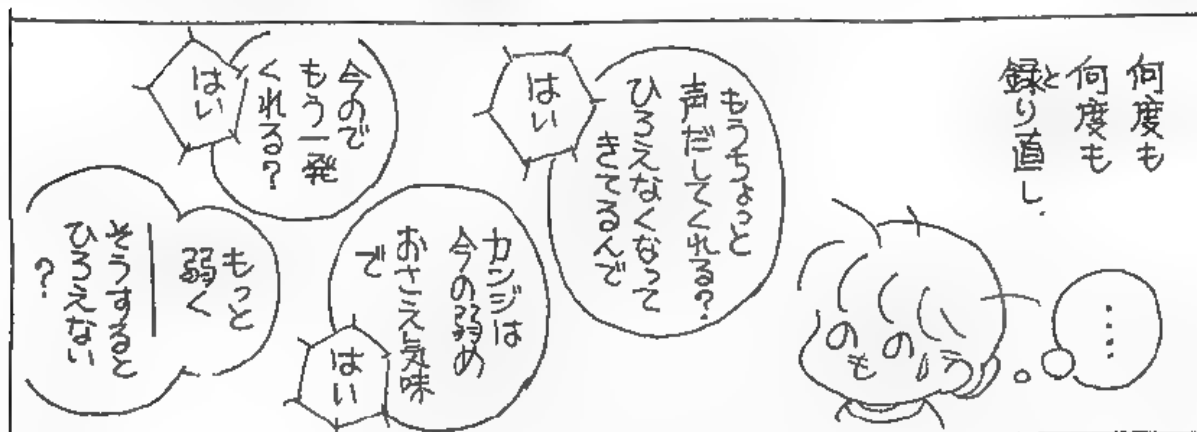 何度も
何度も
と
録り直し、
‥‥
もうちょっと
声だしてくれる?
ひろえなくなって
きてるんで
はい
カンジは
今の弱め
おさえ気味
で
はい
今ので
もう一発
くれる?
はい
もっと
弱く
そうすると
ひろえない
?